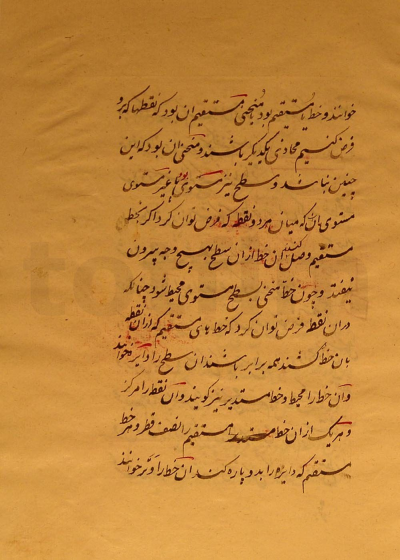 خوانند و خط یا مستقیم بود یا منحنی مستقیم ان بود که نقطها که برو
فرض کنیم محاذی یکدیگر باشند و منحنی ان بود که این
چنین نباشد و سطح نیز مستوی بود یا غیر مستوی
مستوی ان که میان هر دو نقطه که فرض توان کرد اگر بخط
مستقیم وصل کنند ان خط از ان سطح بهیچ وجه بیرون
نیفتد و چون خط منحنی بسطح مستوی محیط شود چنانکه
در ان نقطه فرض توان کرد که خط های مستقیم که از ان نقطه
بان خط کشند همه برابر باشند ان سطح را دایره خوانند
و ان خط را محیط و خط مستدیر نیز کویند و ان نقطه را مرکز
و هر یک از ان خط مستقیم را نصف قطر و هر خط
مستقیم که دایره را بدو پاره کند ان خط را وتر خوانند